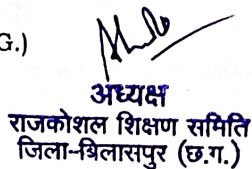 G.)
अध्यक्ष
राजकोशल शिक्षण समिति
जिला-बिलासपुर (छ.ग.)